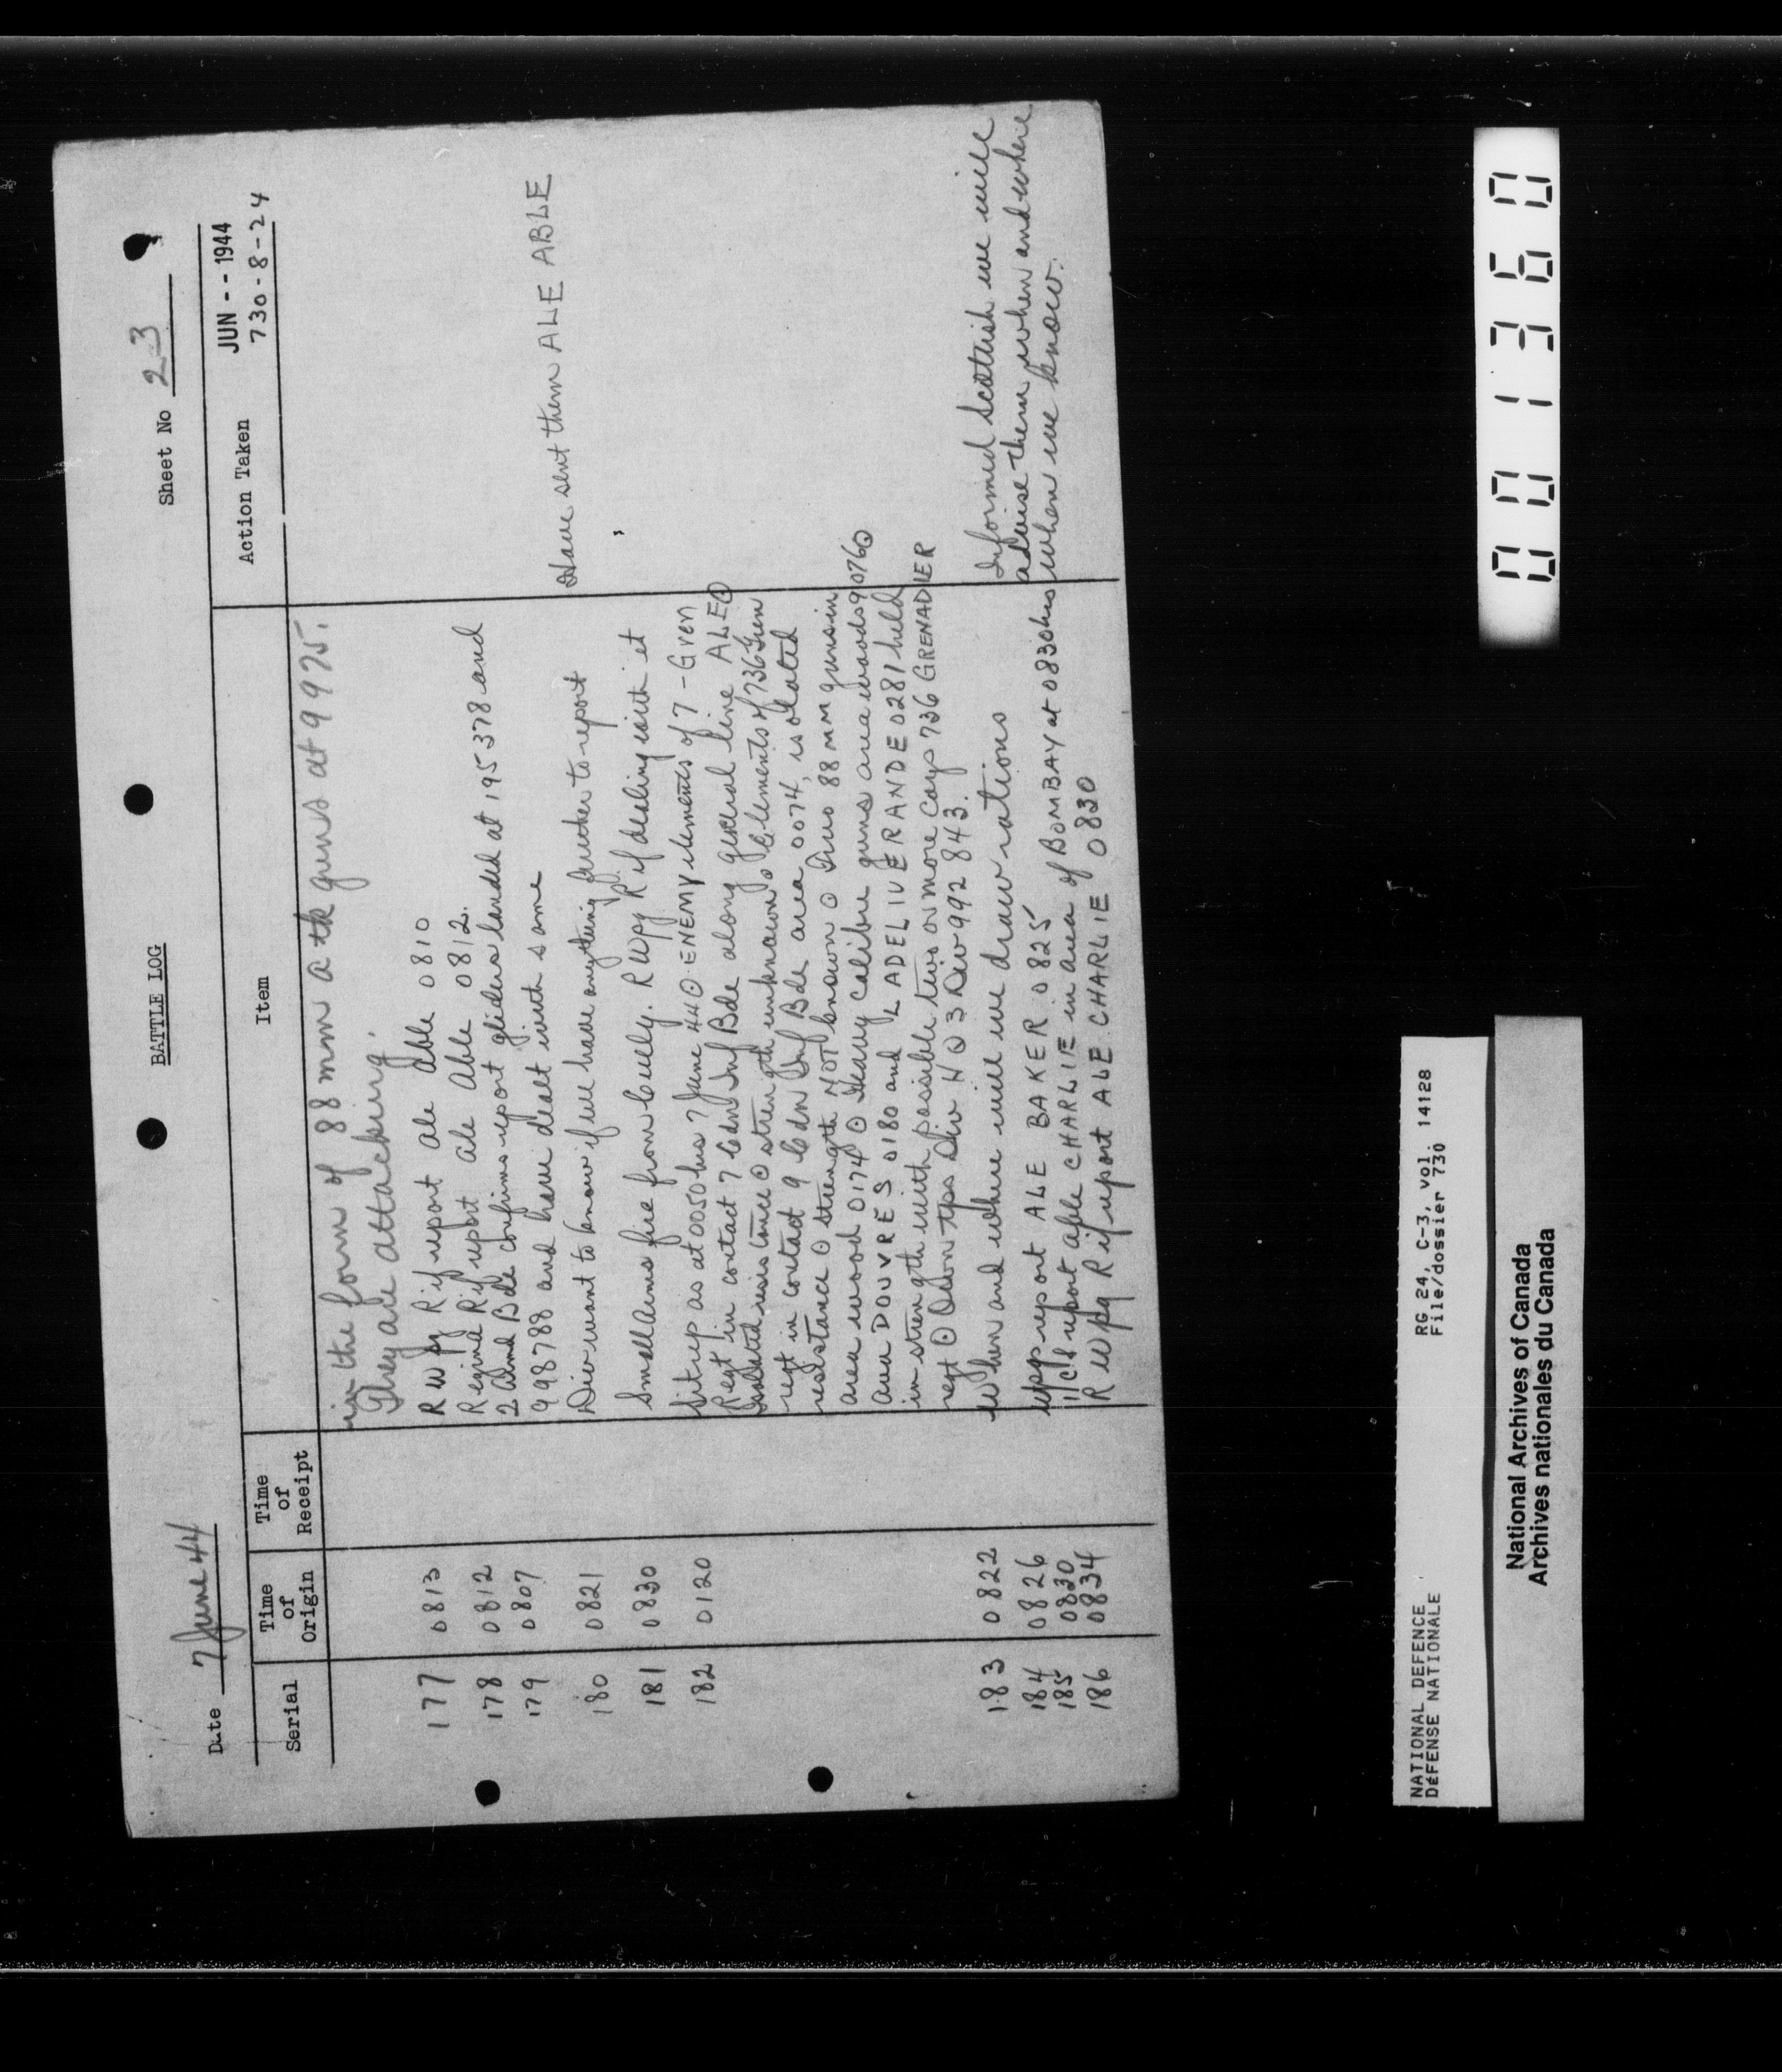 BATTLE LOG
Sheet No 23
Date 7 June 44
JUN - - 1944
730-8-24
Serial
Time of Origin
Time of Receipt
Item
Action Taken
in the form of 88 mm a tk guns at 9975.
They are attacking.
177 0813 R Wpg Rif report ale able 0810
178 0812 Regina Rif report ale able 0812.
179 0807 2 Armd Bde confirms report gliders landed at 195378 and
998788 and have dealt with same
180 0821 Div want to know if we have anything further to report
Have sent them ALE ABLE
181 0830 Small arms fire from Cully. R Wpg Rif dealing with it
182 0120 Sitrep as at 0050 hrs 7 June 44 ⊙ ENEMY elements of 7 - Gren
Regt in contact 7 Cdn Inf Bde along general line ALE ⊙
Isolated resistance ⊙ strength unknown ⊙ Elements of 736 Gren
regt in contact 9 Cdn Inf Bde area 0074, isolated
resistance ⊙ strength NOT known ⊙ Two 88 MM guns in
area wood 0174 ⊙ Heavy calibre guns area woods 9076 ⊙
area DOUVRES 0180 and LADELIVERANDE 0281 held
in strength with possible two or more coys 736 GRENADIER
regt ⊙ Own tps Div H ⊙ 3 Div 992843.
183 0822 When and where will we draw rations
Informed Scottish we will
advise them when and where
when we know.
184 0826 Wpgs report ALE BAKER 0825
185 0830 "C" report able CHARLIE in area of BOMBAY at 0830hrs
186 0834 R Wpg Rif report ALE CHARLIE 0830
001360
NATIONAL DEFENCE
DÉFENSE NATIONALE
RG 24, C-3, vol. 14128
File/dossier 730
National Archives of Canada
Archives nationales du Canada